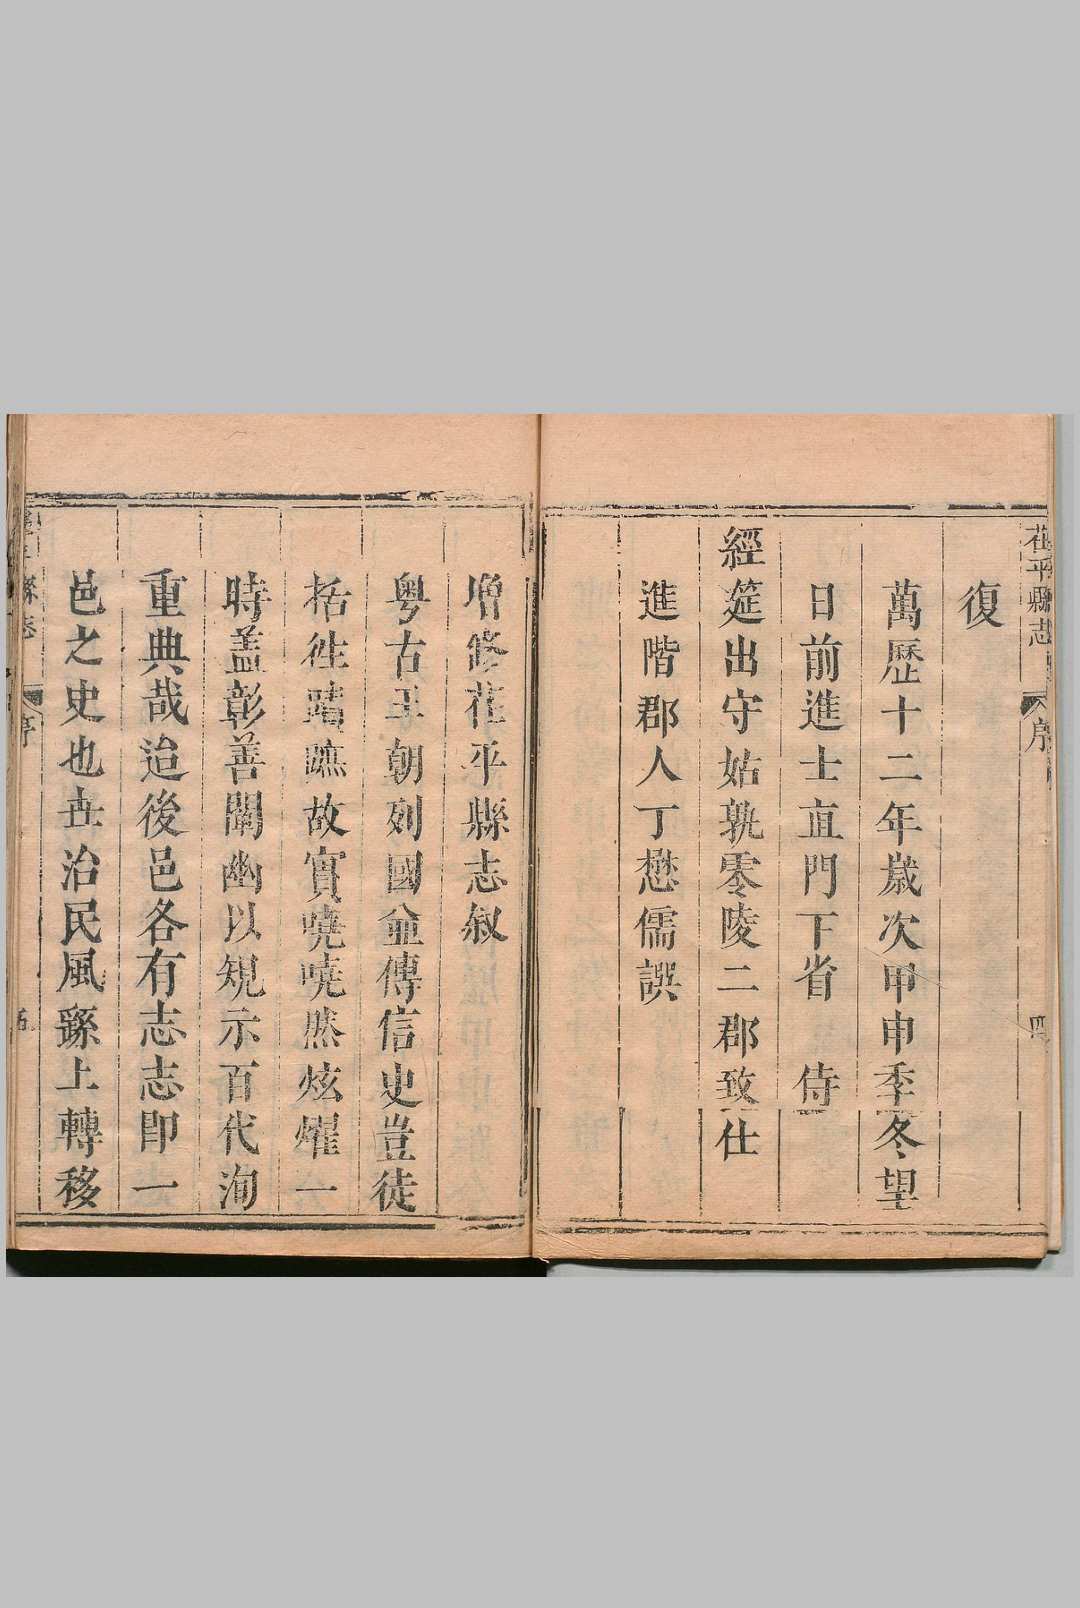 茌平縣志
序
四
復
萬歷十二年歲次甲申季冬望
日前進士直門下省　侍
經筵出守姑孰零陵二郡致仕
進階郡人丁懋儒譔
增修茌平縣志叙
粤古王朝列國並傳信史豈徒
括往蹟䜟故實嘵嘵然炫燿一
時盖彰善闡幽以䂓示百代洵
重典哉迨後邑各有志志即一
邑之史也世治民風繇上轉移
縣志
序
五